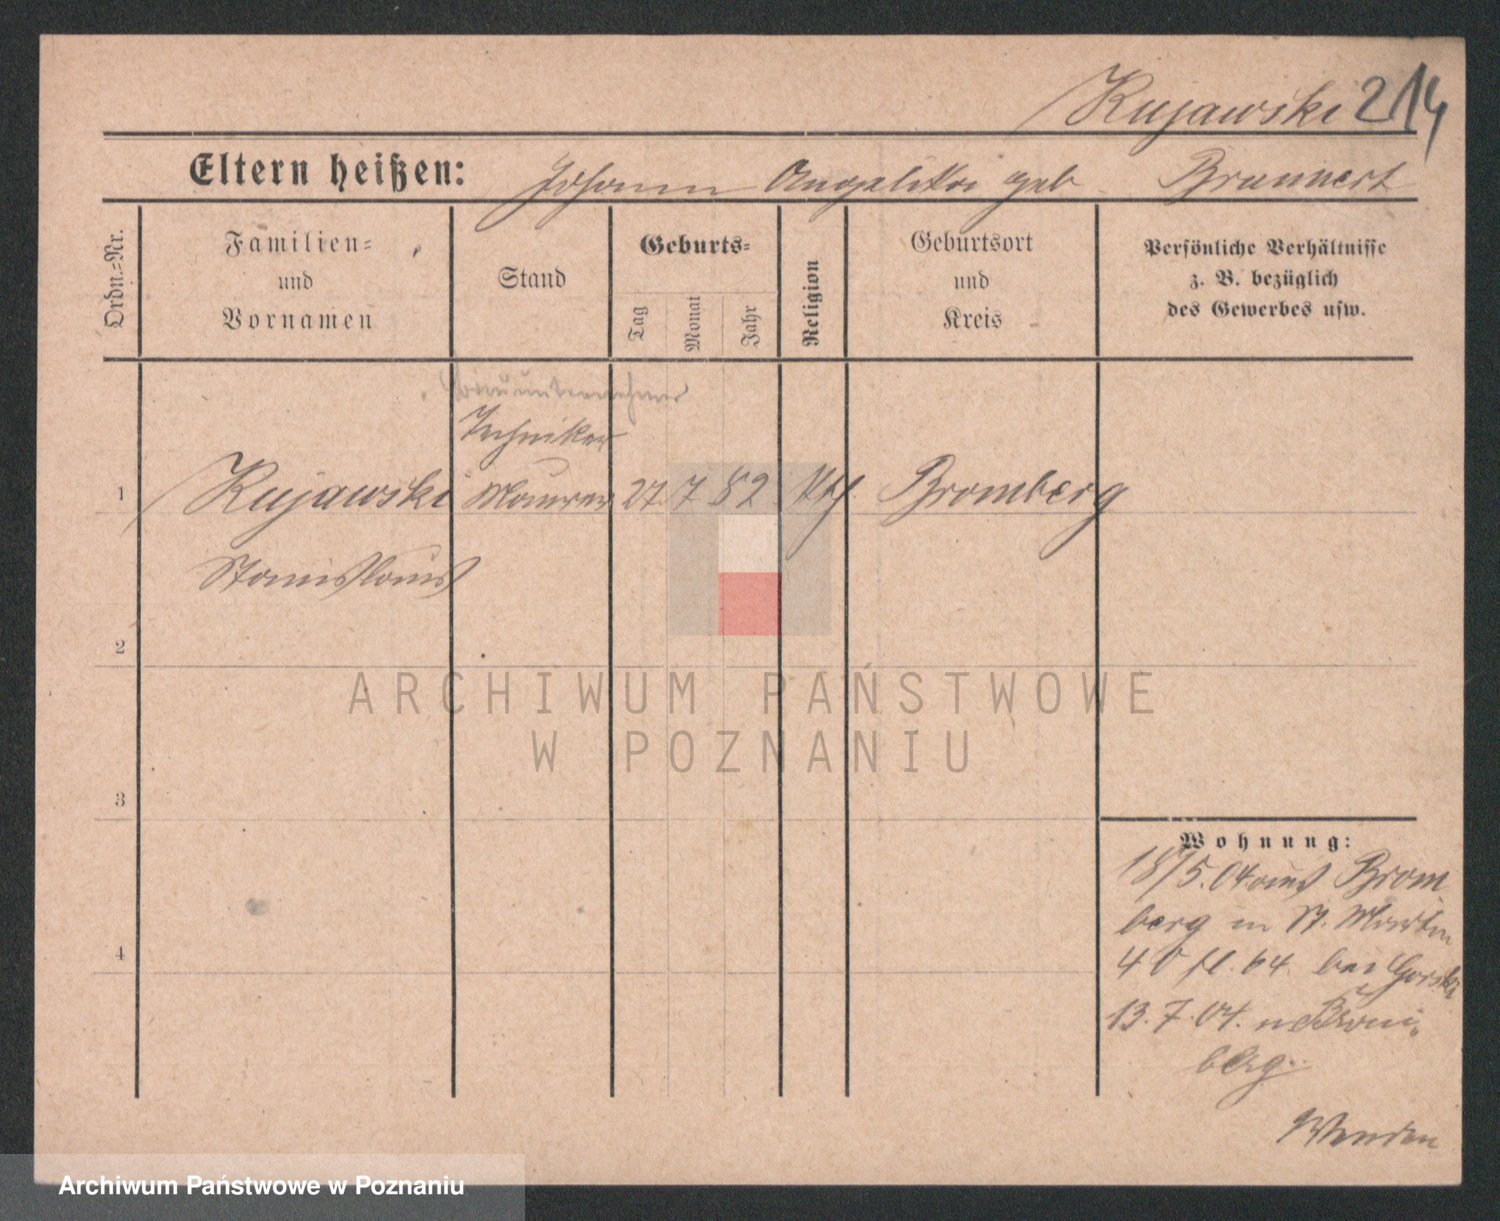 Kujawski 214
Eltern heißen: Johann Angelika geb. Brunnert
Ordn.=Nr.
Familien=
und
Vornamen
Stand
Geburts=
Tag
Monat
Jahr
Religion
Geburtsort
und
Kreis
Persönliche Verhältnisse
z. B. bezüglich
des Gewerbes usw.
Bauunternehmer
Techniker
1 Kujawski Maurer 27. 7 82 Kth. Bromberg
Stanislaus
2
3
4
Wohnung:
18/5.04 aus Brom
berg in St. Martin
40 bei Gorski
13.7.04. n Brom,,
berg.
Wenden
ARCHIWUM PAŃSTWOWE
W POZNANIU
Archiwum Państwowe w Poznaniu